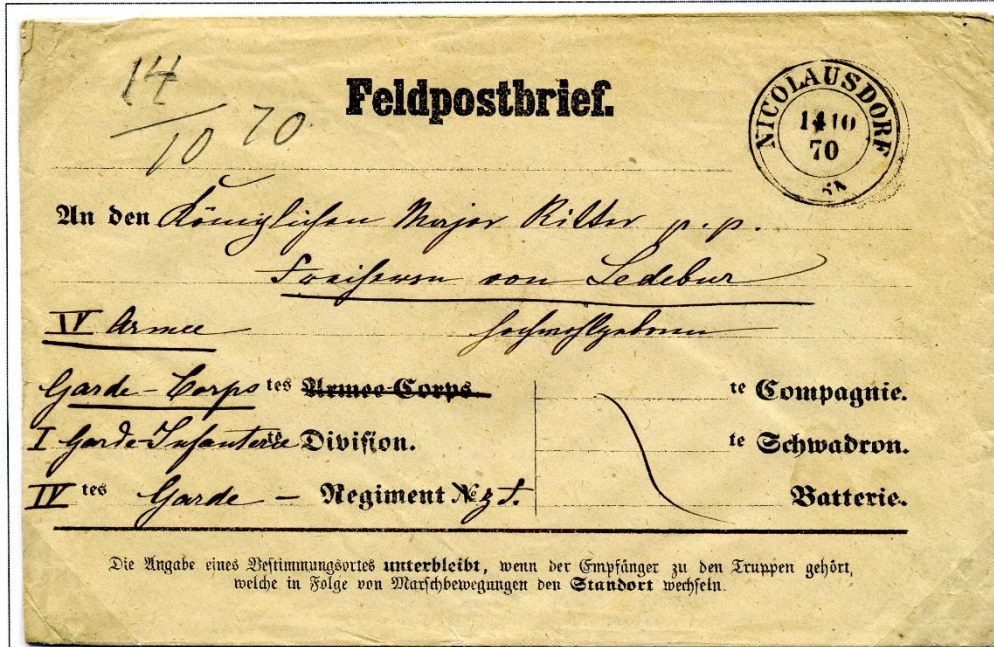 14/10 70
Feldpostbrief.
NICOLAUSDORF
14 10
70
An den Königlichen Major Ritter p. p.
Freiherrn von Ledebur
IV Armee Hochwohlgeboren
Garde-Corps tes Armee-Corps. te Compagnie.
I Garde-Infanterie te Division. te Schwadron.
IV tes Garde - Regiment No z. F. Batterie.
Die Angabe eines Bestimmungsortes unterbleibt, wenn der Empfänger zu den Truppen gehört,
welche in Folge von Marschbewegungen den Standort wechseln.